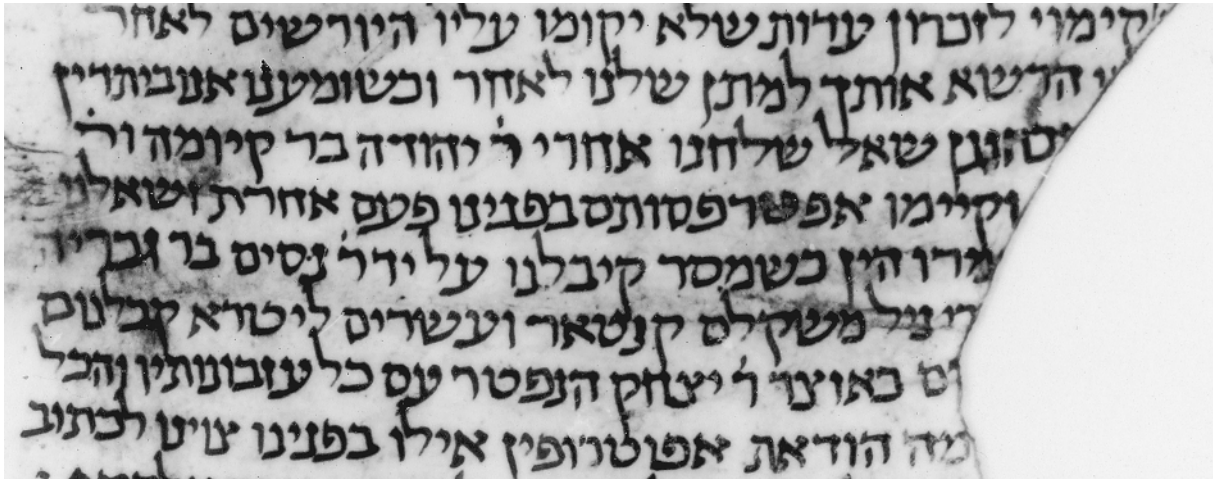 קימוי לזכרון עדות שלא יקומו עליו היורשים לאחר
הרשא אותך למתן שלנו לאחר וכשומענו אנו בית דין
שאל שלחנו אחרי ר' יהודה בר קיומה ור'
וקיימו אפטרפסותם בפנינו פעם אחרת ושאלנו
הין כשמסר קיבלנו על יד ר' נסים בר
משקלם קנטאר ועשרים ליטרא קבלנום
באוצר ר' יצחק הנפטר עם כל עזבונותיו והכל
מה הודאת אפוטרופין אילו בפנינו צוינו לכתוב